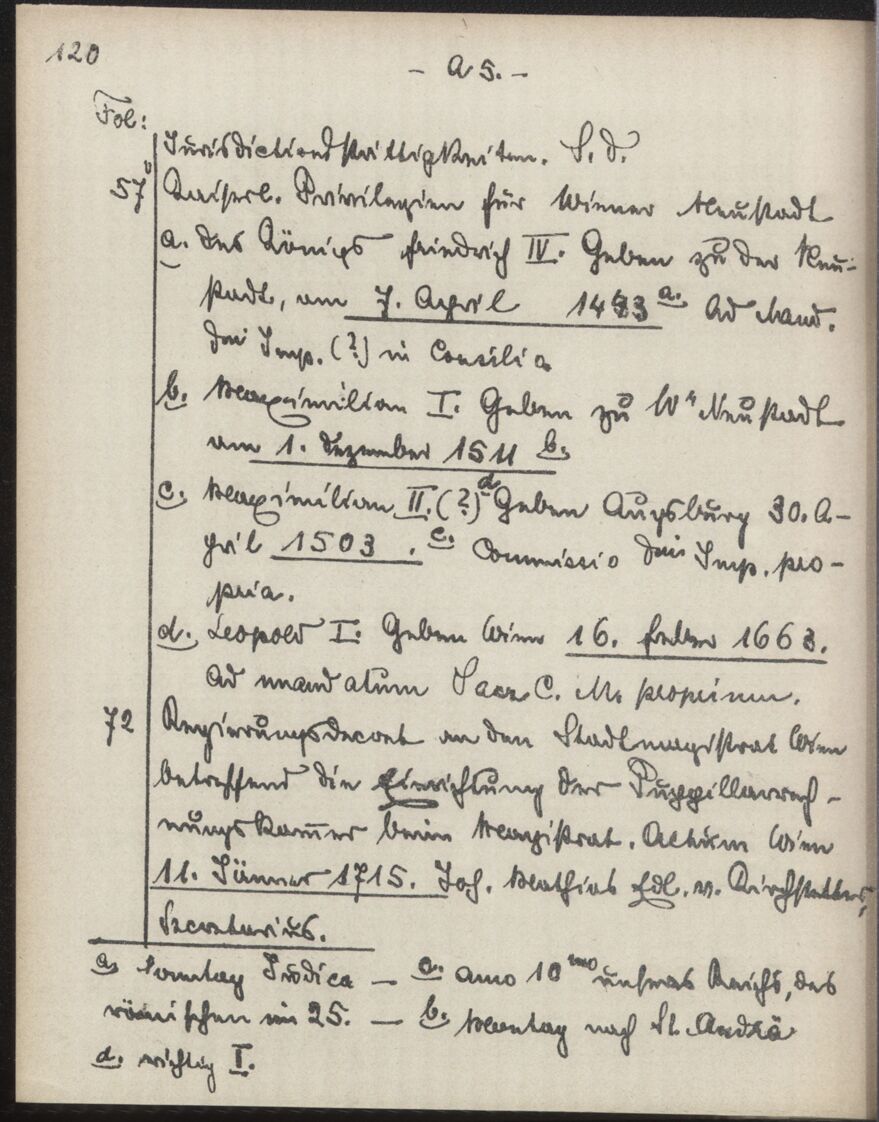 120
- A 5. -
Fol:
Jurisdictionsstrittigkeiten. S. d.
57v Kaiserl. Privilegien für Wiener Neustadt
a. des Königs Friedrich IV. Geben zu der Neu-
stadt, am 7. April 1443 a. Ad Mand.
Dni Imp. (?) in Consilio
b. Maximilian I. Geben zu Wr Neustadt
am 1. Dezember 1511 b.
c. Maximilian II. (?) d Geben Augsburg 30. A-
pril 1503. c. Commissio Dni Imp. pro-
pria.
d. Leopold I. Geben Wien 16. Feber 1663.
Ad mandatum Sacr. C. M. proprium.
72 Regierungsdecret an den Stadtmagistrat Wien
betreffend die Einrichtung der Puppillarrech-
nungskammer beim Magistrat. Actum Wien
11. Jänner 1715. Joh. Mathias Edl. v. Kirchstetter,
Secretarius.
a. Sonntag Judica - c. anno 10 mo unseres Reichs, des
römischen im 25. - b. Montag nach St. Andrä
d. richtig I.